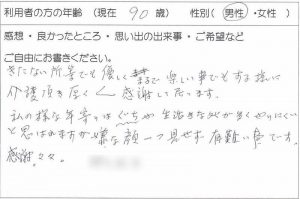 利用者の方の年齢（現在 90 歳） 性別（男性・女性）
感想・良かったところ・思い出の出来事・ご希望など
ご自由にお書きください。
きたない所等でも優しくまるで楽しい事でもする様に
介護頂き厚く感謝して居ります。
私の様な年寄りはぐちや生活きな処が多くやりにくい
と思はれますが嫌な顔一つ見せず有難い事です。
感謝々々。